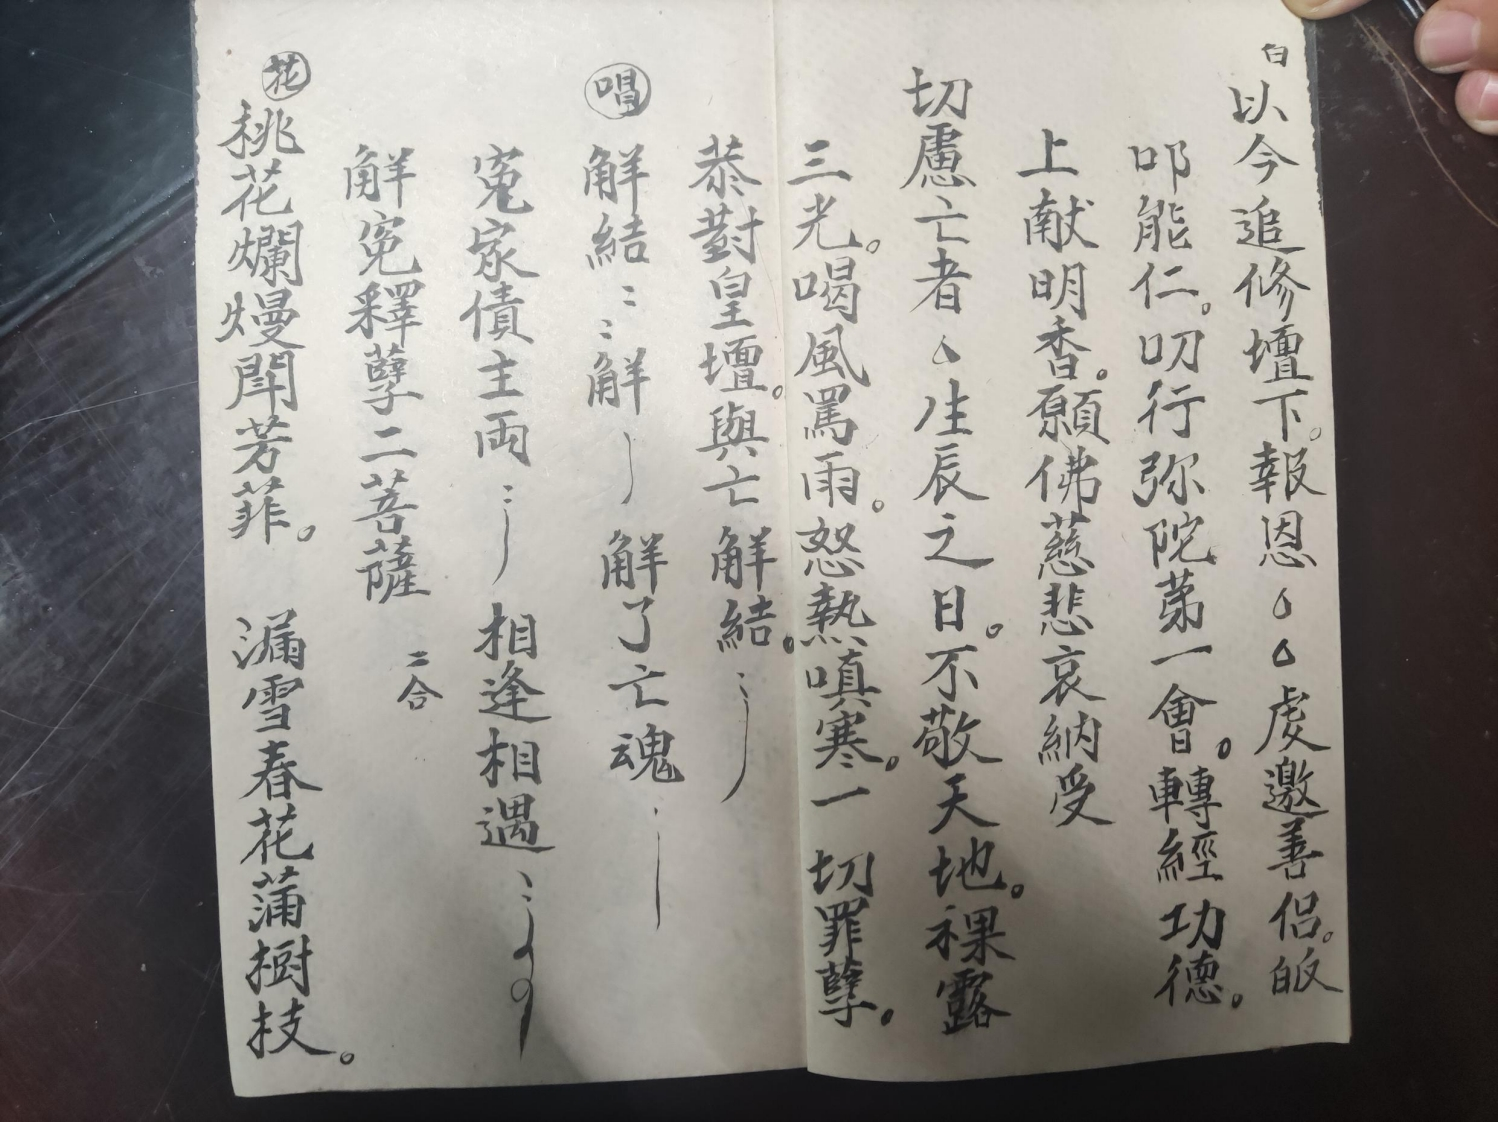 白
以今追修壇下。報恩厶厶虔邀善侶。皈
叩能仁。叨行弥陀第一會。轉經功德。
上献明香。願佛慈悲哀納受
切慮亡者厶生辰之日。不敬天地。裸露
三光。喝風罵雨。怒熱嗔寒。一切罪孽。
恭對皇壇。與亡解結。
唱
解結：：解 解了亡魂
寃家債主両 相逢相遇
解寃釋孽二菩薩 二合
花
桃花爛熳鬥芳菲。 漏雪春花蒲樹枝。